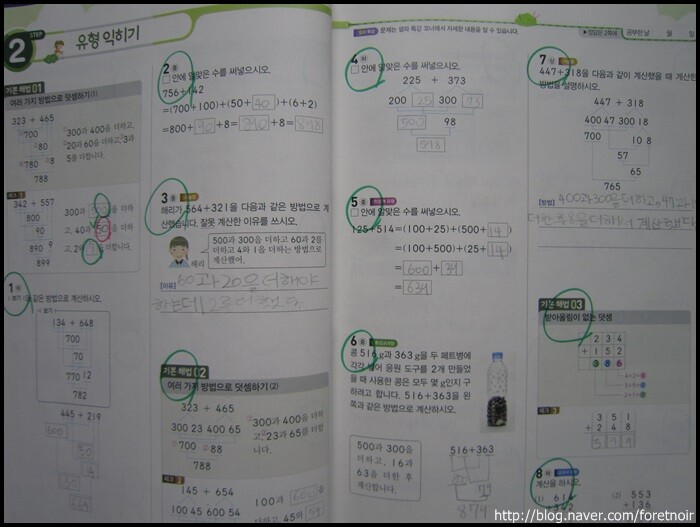 2 STEP 유형 익히기
기본 해법 01
여러 가지 방법으로 덧셈하기(1)
323 + 465
700
80
780 8
788
300과 400을 더하고,
20과 60을 더하고, 3과
5를 더합니다.
342 + 557
800
90
890 9
899
300과 500을 더하
고, 40과 50을 더하
고, 2와
을 더합니다.
1
같은 방법으로 계산하시오.
보기
134 + 648
700
70
770 12
782
445 + 219
600
50
14
664
2
□ 안에 알맞은 수를 써넣으시오.
756+142
=(700+100)+(50+40)+(6+2)
=800+90+8=890+8=898
3
해리가 564+321을 다음과 같은 방법으로 계
산했습니다. 잘못 계산한 이유를 쓰시오.
500과 300을 더하고 60과 2를
더하고 4와 1을 더하는 방법으로
계산했어.
해리
[이유] 60과 20을 더해야
하는데 2로 더했다.
기본 해법 02
여러 가지 방법으로 덧셈하기(2)
323 + 465
300 23 400 65
700 88
788
300과 400을 더하
고 23과 65를 더합
니다.
145 + 654
100과 600을
하고 45와
문제는 열과 특강 코너에서 자세한 내용을 알 수 있어요.
정답은 2쪽에
공부한 날 월 일
4
□ 안에 알맞은 수를 써넣으시오.
225 + 373
200 25 300 73
500 98
598
5
□ 안에 알맞은 수를 써넣으시오.
125+514=(100+25)+(500+14)
=(100+500)+(25+14)
=600+39
=639
6
콩 516 g과 363 g을 두 페트병에
각각 넣어 응원 도구를 2개 만들었
을 때 사용한 콩은 모두 몇 g인지 구
하려고 합니다. 516+363을 왼
쪽과 같은 방법으로 계산하시오.
500과 300을
더하고, 16과
63을 더한 후
계산했습니다.
516+363
879
7
447+318을 다음과 같이 계산했을 때 계산한
방법을 설명하시오.
447 + 318
400 47 300 18
700 10 8
57
65
765
[방법] 400과 300을 더하고, 47과
기본 해법 03
받아올림이 없는 덧셈
2 3 4
+ 1 5 2
3 8 6
3 5 1
+ 2 4 8
5 9 9
8
계산을 하시오.
(1) 614
(2) 553
+136
http://blog.naver.com/foretnoir